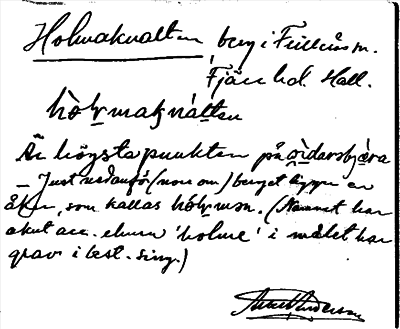 Holmaknatten berg i Frillesås sn.
Fjäre hd. Hall.
hòl̥makna̍ttən
Är högsta punkten på
Just nedanför (norr om) berget ligger en
åker, som kallas. (Namnet har
akut acc. ehuru 'holme' i målet har
grav i best. sing.)